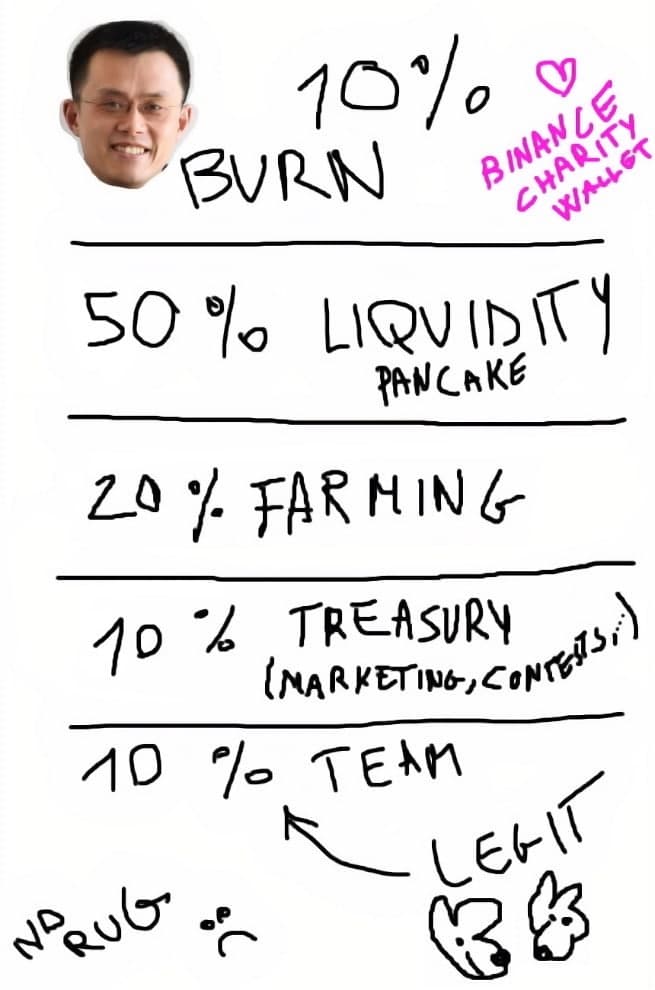 10%
BURN
BINANCE
CHARITY
WALLET
50% LIQUIDITY
PANCAKE
20% FARMING
10% TREASURY
(MARKETING, CONTESTS,...)
10% TEAM
LEGIT
NO
RUG